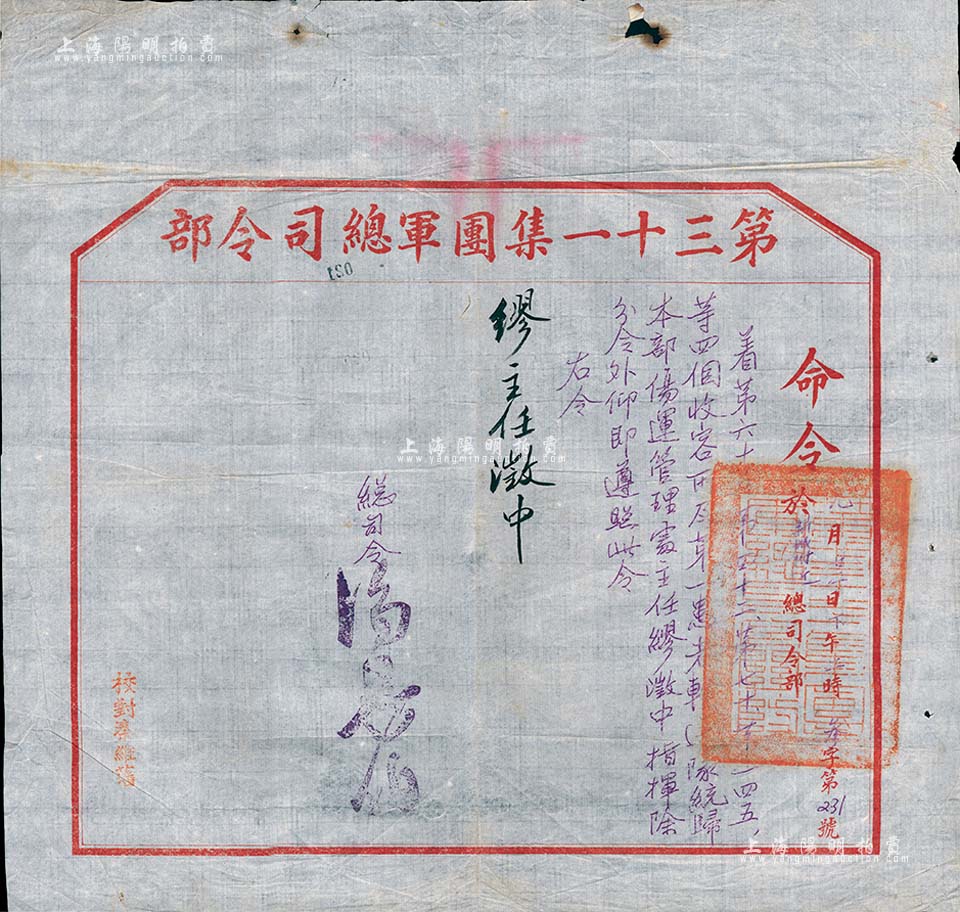 上海陽明拍賣
www.yangmingauction.com
第三十一集團軍總司令部
031
命令
月 日 午 時
於 總司令部
字第231號
着第六十 第七十 一四五、
等四個收容所及第一患者車 隊統歸
本部傷運管理處主任繆澂中指揮除
分令外仰即遵照此令
右令
繆主任澂中
總司令湯恩伯
校對
上海陽明拍賣
www.yangmingauction.com
上海陽明拍賣
www.yangmingauction.com